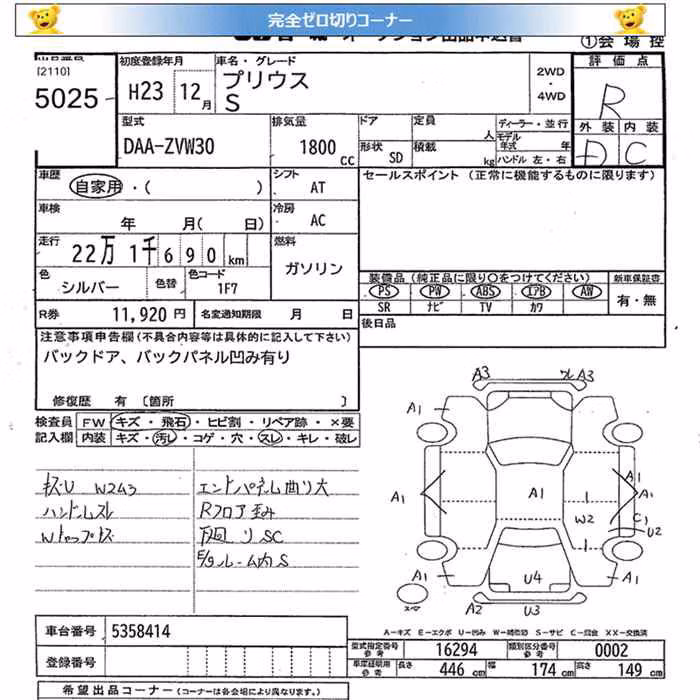 完全ゼロ切りコーナー
①会場控
出品番号
[2110]
5025
初度登録年月
H23 12月
車名・グレード
プリウス
S
2WD
・
4WD
評価点
R
外装 内装
D C
型式
DAA-ZVW30
排気量
1800 CC
ドア
定員
人
形状 SD
積載
kg
ディーラー・並行
モデル年式 年
ハンドル 左・右
車歴
自家用・( )
シフト
AT
セールスポイント(正常に機能するものに限ります)
車検
年 月( 日)
冷房
AC
走行
22万1千690km
燃料
ガソリン
色
シルバー
色替
色コード
1F7
装備品(純正品に限り○をつけてください)
新車保証書
PS PW ABS エアB AW
有・無
SR ナビ TV カワ
R券 11,920円
名変通知期限 月 日
後日品
注意事項申告欄(不具合内容等は具体的に記入して下さい)
バックドア、バックパネル凹み有り
修復歴 有〔箇所 〕
検査員記入欄
FW キズ・飛石・ヒビ割・リペア跡・×要
内装 キズ・汚レ・コゲ・穴・スレ・キレ・破レ
キズU W2A3
ハンドルスレ
エンドパネル曲り大
Rフロア歪み
下廻りSC
E/gルーム内S
A3
A3
A1
A1
A1
A1
A1
A1
W2
C1
U2
A1
A1
U4
A2
U3
A-キズ E-エクボ U-凹み W-補修跡 S-サビ C-腐蝕 XX-交換済
車台番号 5358414
登録番号
型式指定番号 参考 16294
類別区分番号 参考 0002
車庫証明用 参考 長さ 446cm 幅 174cm 高さ 149cm
希望出品コーナー(コーナーは各会場により異なります。)